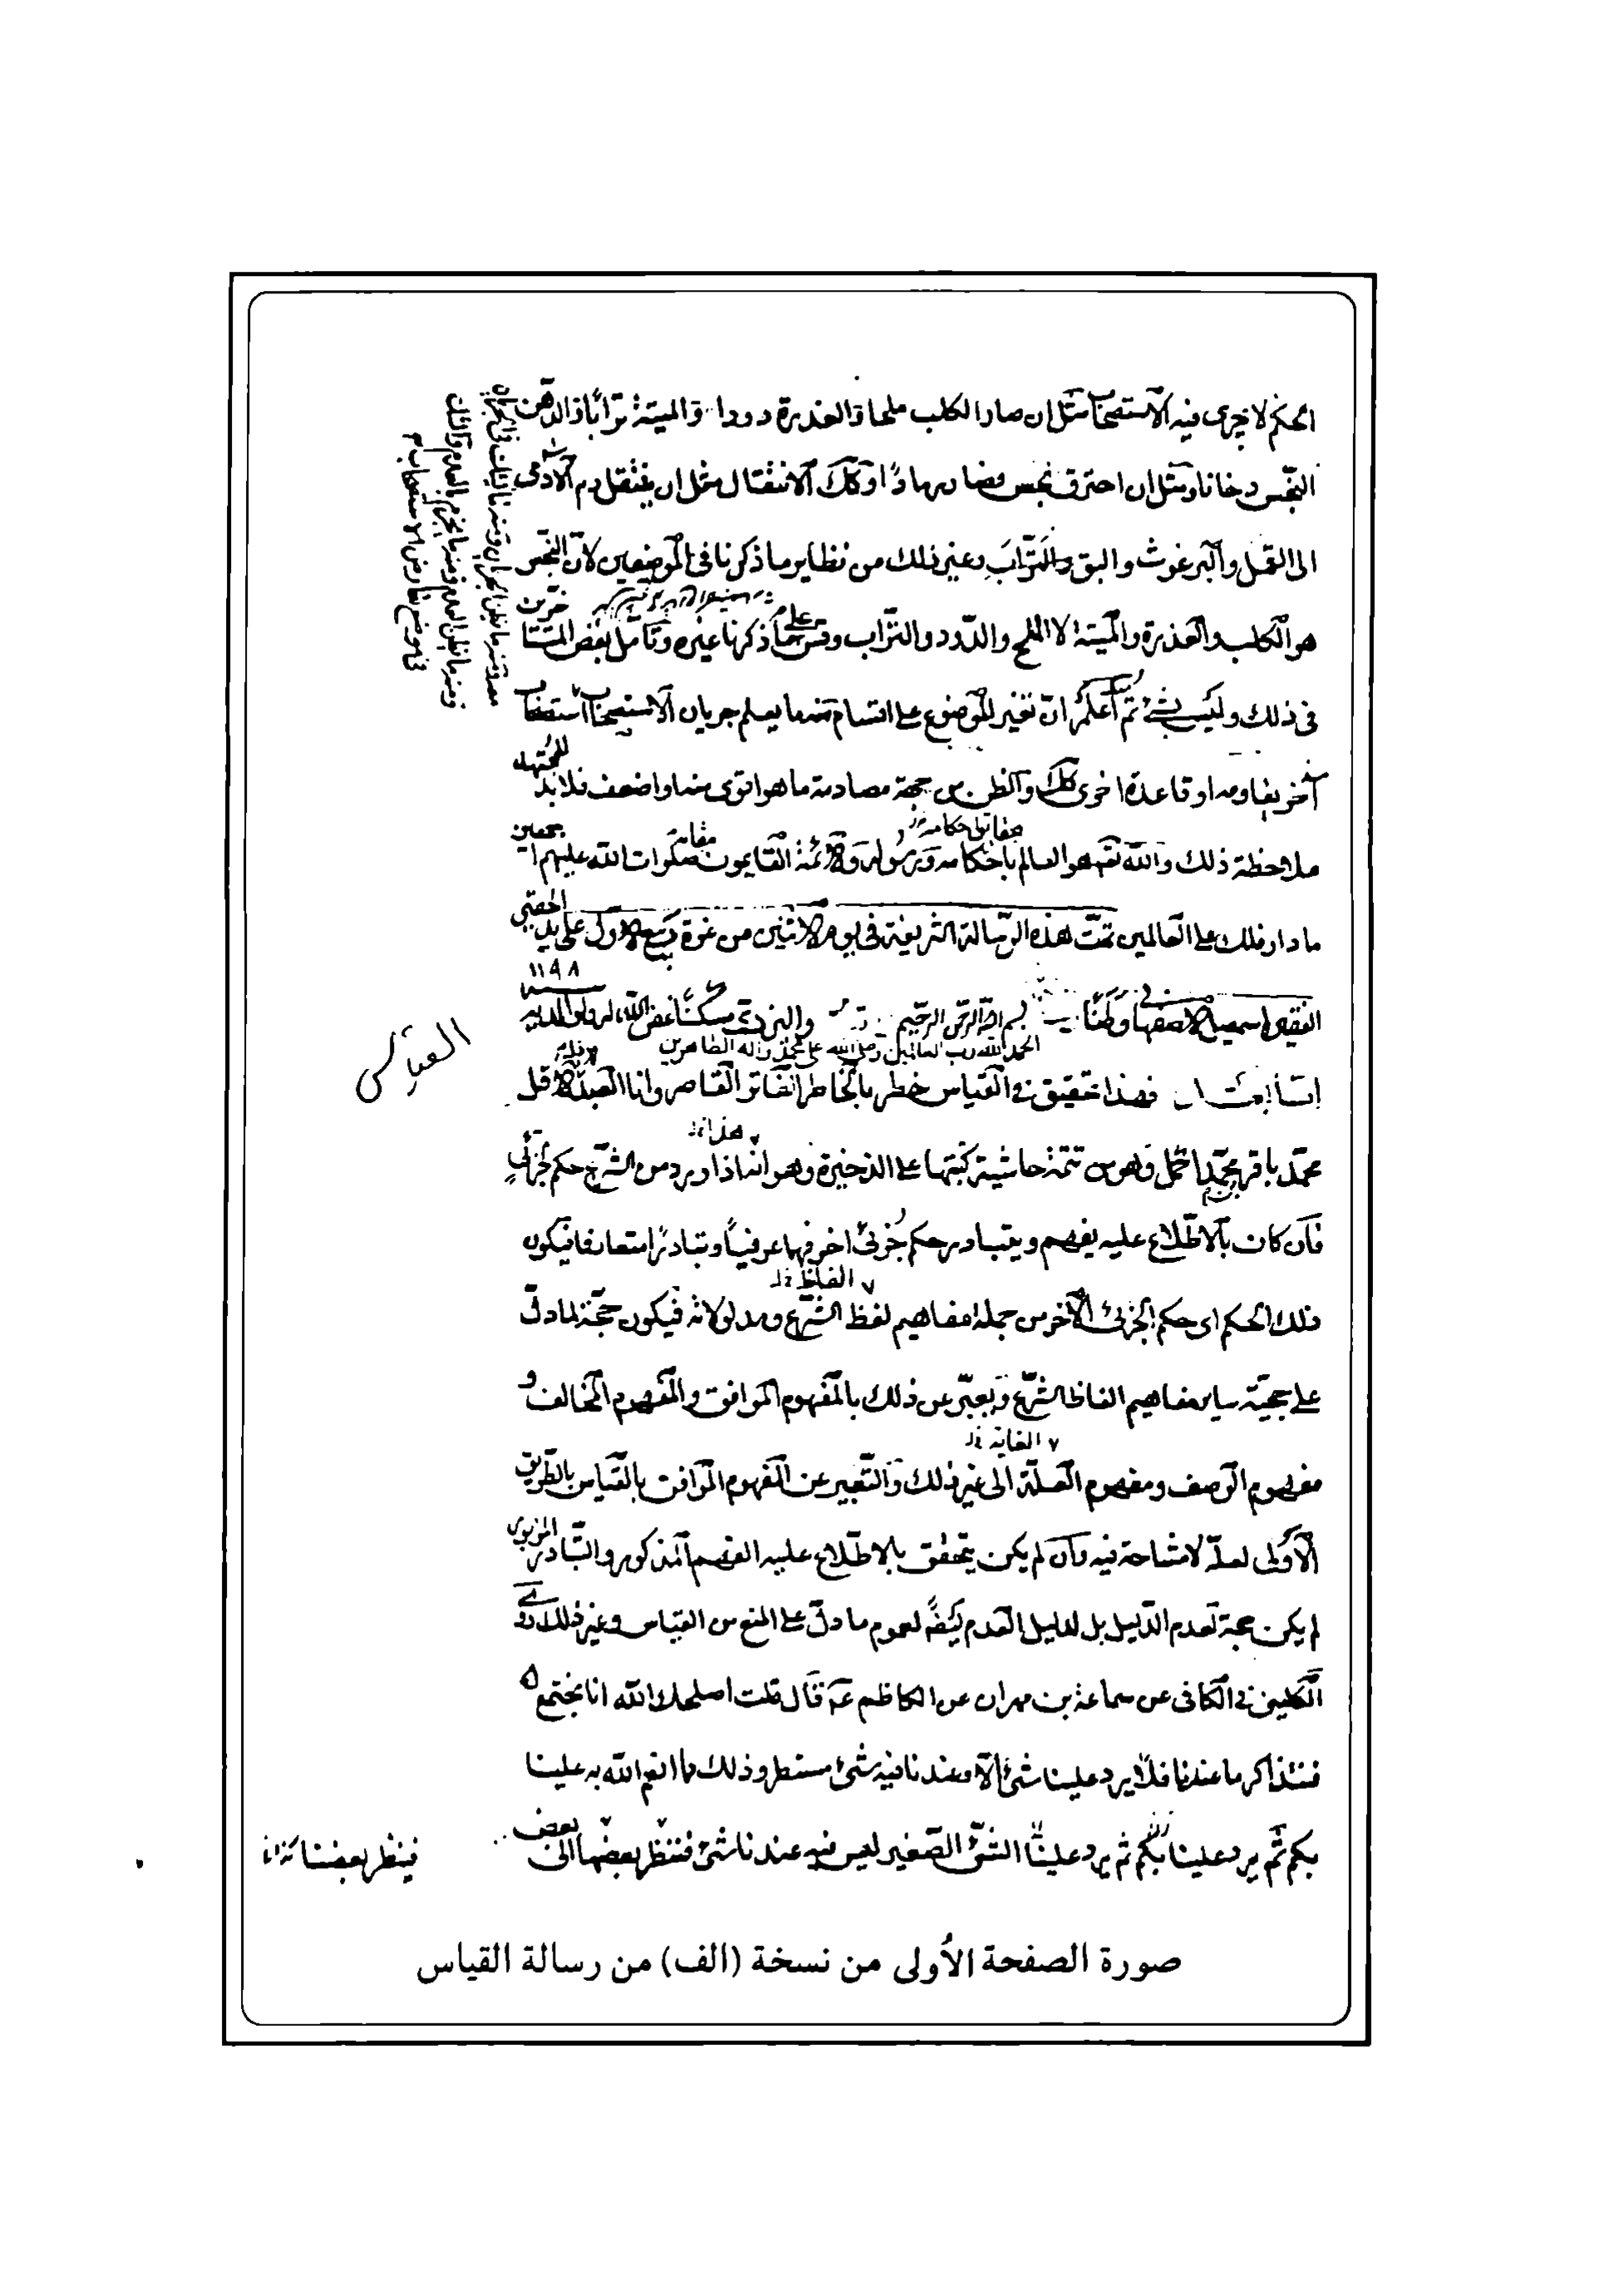 الحكم لا يجرى فيه الاستصحاب مثل ان صار الكلب ملحا والعذرة دودا والميتة ترابا والدهن
النجس دخانا ومثل ان احترق نجس فصار رمادا وكك الانتقال مثل ان ينتقل دم الادمى
الى القمل والبرغوث والبق والتراب وغير ذلك من نظاير ما ذكرنا فى الموضعين لان النجس
هو الكلب والعذرة والميتة لا الملح والدود والتراب وقس على ما ذكرنا غيره وتامل بعض المتاخرين
فى ذلك وليس بشئ ثم اعلم ان تغير الموضوع على اقسام منه ما يعلم جريان الاستصحاب استصحاب
آخر يقاومه او قاعدة اخرى كك والظن من جهة مصادمة ما هو اقوى منه او اضعف فلا بد للمجتهد
ملاحظة ذلك والله تعم هو العالم باحكامه ورسوله والائمة القايمون مقامه صلوات الله عليهم اجمعين
بحقايق احكامه
ما دار فلك على العالمين تمت هذه الرسالة الشريفة فى يوم الاثنين من غرة ربيع الاولى على يد الحقير
١١٩٨
الفقير اسمعيل الاصفهانى وطنا والنزدى مسكنا غفر الله له ولوالديه
بسم الله الرحمن الرحيم
الحمد لله رب العالمين وصلى الله على محمد وآله الطاهرين
القياس
اما بعد فهذا تحقيق فى القياس خطر بالخاطر الفاتر القاصر وانا العبد الاقل
هذا
محمد باقر بن محمد اكمل وهو من تتمة حاشية كتبتها على الذخيرة وهو انه اذا ورد من الشرع حكم جزئي
فان كان بالاطلاع عليه يفهم ويتبادر حكم جزئى اخر فهما عرفيا وتبادرا متعارفا فيكون
الفاظ
ذلك الحكم اى حكم الجزئى الآخر من جملة مفاهيم لفظ الشرع ومدلولاته فيكون حجة لما دل
على حجية ساير مفاهيم الفاظ الشرع ويعبر عن ذلك بالمفهوم الموافق والمفهوم المخالف و
الغاية
مفهوم الوصف ومفهوم العلة الى غير ذلك والتعبير عن المفهوم الموافق بالقياس بالطريق
الاولى لعله لا مشاحة فيه وان لم يكن يتحقق بالاطلاع عليه الفهم المذكور والتبادر المزبور
لم يكن حجة لعدم الدليل بل لدليل العدم ايضا لعموم ما دل على المنع من القياس وغير ذلك روى
الكلينى فى الكافى عن سماعة بن مهران عن الكاظم ع قال قلت اصلحك الله انا نجتمع
فنتذاكر ما عندنا فلا يرد علينا شئ الا وعندنا فيه شئ مستطر وذلك مما انعم الله به علينا
بكم ثم يرد علينا بكم ثم يرد علينا الشئ الصغير ليس فيه عندنا شئ فننظر بعضها الى بعض
فينظر بعضنا
صورة الصفحة الأولى من نسخة (الف) من رسالة القياس